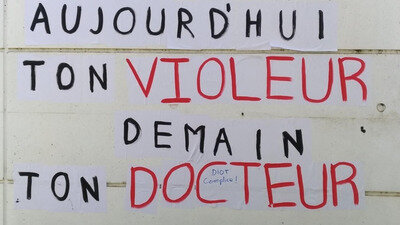 AUJOURD'HUI
TON VIOLEUR
DEMAIN
TON DOCTEUR
DIOT
Complice !